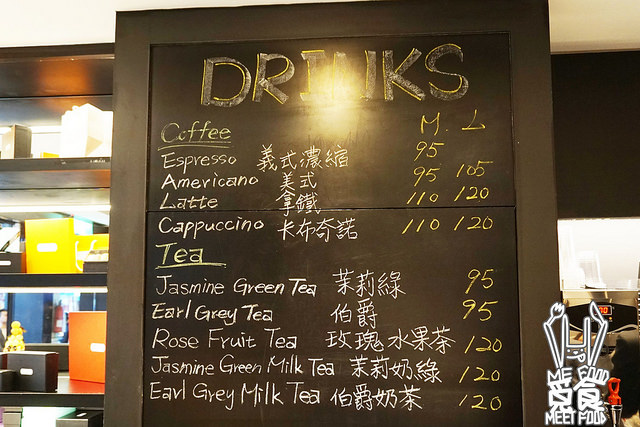 DRINKS
Coffee M. L
Espresso 義式濃縮 95
Americano 美式 95 105
Latte 拿鐵 110 120
Cappuccino 卡布奇諾 110 120
Tea
Jasmine Green Tea 茉莉綠 95
Earl Grey Tea 伯爵 95
Rose Fruit Tea 玫瑰水果茶 120
Jasmine Green Milk Tea 茉莉奶綠 120
Earl Grey Milk Tea 伯爵奶茶 120
ME FOOD
覓食
MEET FOOD